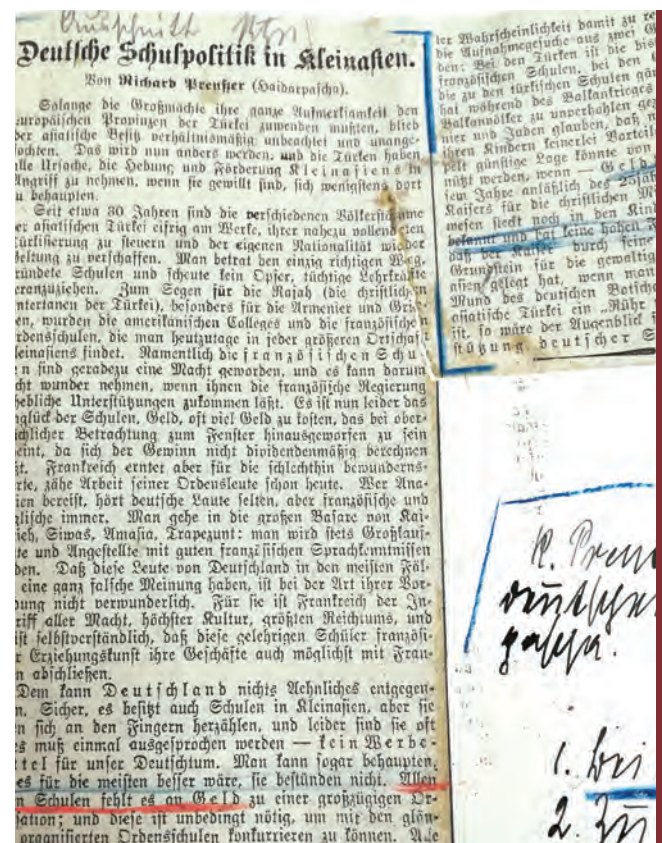 Ausschnitt
Deutsche Schulpolitik in Kleinasien.
Von Richard Preußer (Haidarpascha).
Solange die Großmächte ihre ganze Aufmerksamkeit den
europäischen Provinzen der Türkei zuwenden mußten, blieb
der asiatische Besitz verhältnismäßig unbeachtet und unange-
fochten. Das wird nun anders werden, und die Türken haben
alle Ursache, die Hebung und Förderung Kleinasiens in
Angriff zu nehmen, wenn sie gewillt sind, sich wenigstens dort
zu behaupten.
Seit etwa 30 Jahren sind die verschiedenen Völkerstämme
er asiatischen Türkei eifrig am Werke, ihrer nahezu vollendeten
Türkisierung zu steuern und der eigenen Nationalität wieder
Geltung zu verschaffen. Man betrat den einzig richtigen Weg,
ründete Schulen und scheute kein Opfer, tüchtige Lehrkräfte
eranzuziehen. Zum Segen für die Rajah (die christlichen
ntertanen der Türkei), besonders für die Armenier und Grie-
en, wurden die amerikanischen Colleges und die französischen
rdensschulen, die man heutzutage in jeder größeren Ortschaft
leinasiens findet. Namentlich die französischen Schu-
n sind geradezu eine Macht geworden, und es kann darum
cht wunder nehmen, wenn ihnen die französische Regierung
hebliche Unterstützungen zukommen läßt. Es ist nun leider das
nglück der Schulen, Geld, oft viel Geld zu kosten, das bei ober-
chlicher Betrachtung zum Fenster hinausgeworfen zu sein
eint, da sich der Gewinn nicht dividendenmäßig berechnen
ßt. Frankreich erntet aber für die schlechthin bewunderns-
rte, zähe Arbeit seiner Ordensleute schon heute. Wer Ana-
ien bereist, hört deutsche Laute selten, aber französische und
glische immer. Man gehe in die großen Basare von Kai-
ieh, Siwas, Amasia, Trapezunt: man wird stets Großkauf-
te und Angestellte mit guten französischen Sprachkenntnissen
den. Daß diese Leute von Deutschland in den meisten Fäl-
eine ganz falsche Meinung haben, ist bei der Art ihrer Vor-
dung nicht verwunderlich. Für sie ist Frankreich der In-
riff aller Macht, höchster Kultur, größten Reichtums, und
ist selbstverständlich, daß diese gelehrigen Schüler französi-
r Erziehungskunst ihre Geschäfte auch möglichst mit Fran-
n abschließen.
Dem kann Deutschland nichts Aehnliches entgegen-
n. Sicher, es besitzt auch Schulen in Kleinasien, aber sie
n sich an den Fingern herzählen, und leider sind sie oft
s muß einmal ausgesprochen werden — kein Werbe-
tel für unser Deutschtum. Man kann sogar behaupten,
es für die meisten besser wäre, sie bestünden nicht. Allen
n Schulen fehlt es an Geld zu einer großzügigen Or-
sation; und diese ist unbedingt nötig, um mit den glän-
organisierten Ordensschulen konkurrieren zu können. Alle
ler Wahrscheinlichkeit damit zu re
die Aufnahmegesuche aus zwei G
den: Bei den Türken ist die bis
französischen Schulen, bei den
die zu den türkischen Schulen gän
hat während des Balkankrieges
Balkanvölker zu unverhohlen gez
nier und Juden glauben, daß n
ihren Kindern keinerlei Vorteil
pelt günstige Lage könnte von
nützt werden, wenn — Geld
sem Jahre anläßlich des 25jäh
Kaisers für die christlichen M
wesen steckt noch in den Kind
bekannt und hat keine hohen
daß der Kaiser durch seine
Grundstein für die gewaltig
asien gelegt hat, wenn man
Mund des deutschen Botsch
asiatische Türkei ein „Rühr
ist, so wäre der Augenblick f
stützung deutscher S
R. Preu
deutschen
pascha.
1. bei
2. Zu